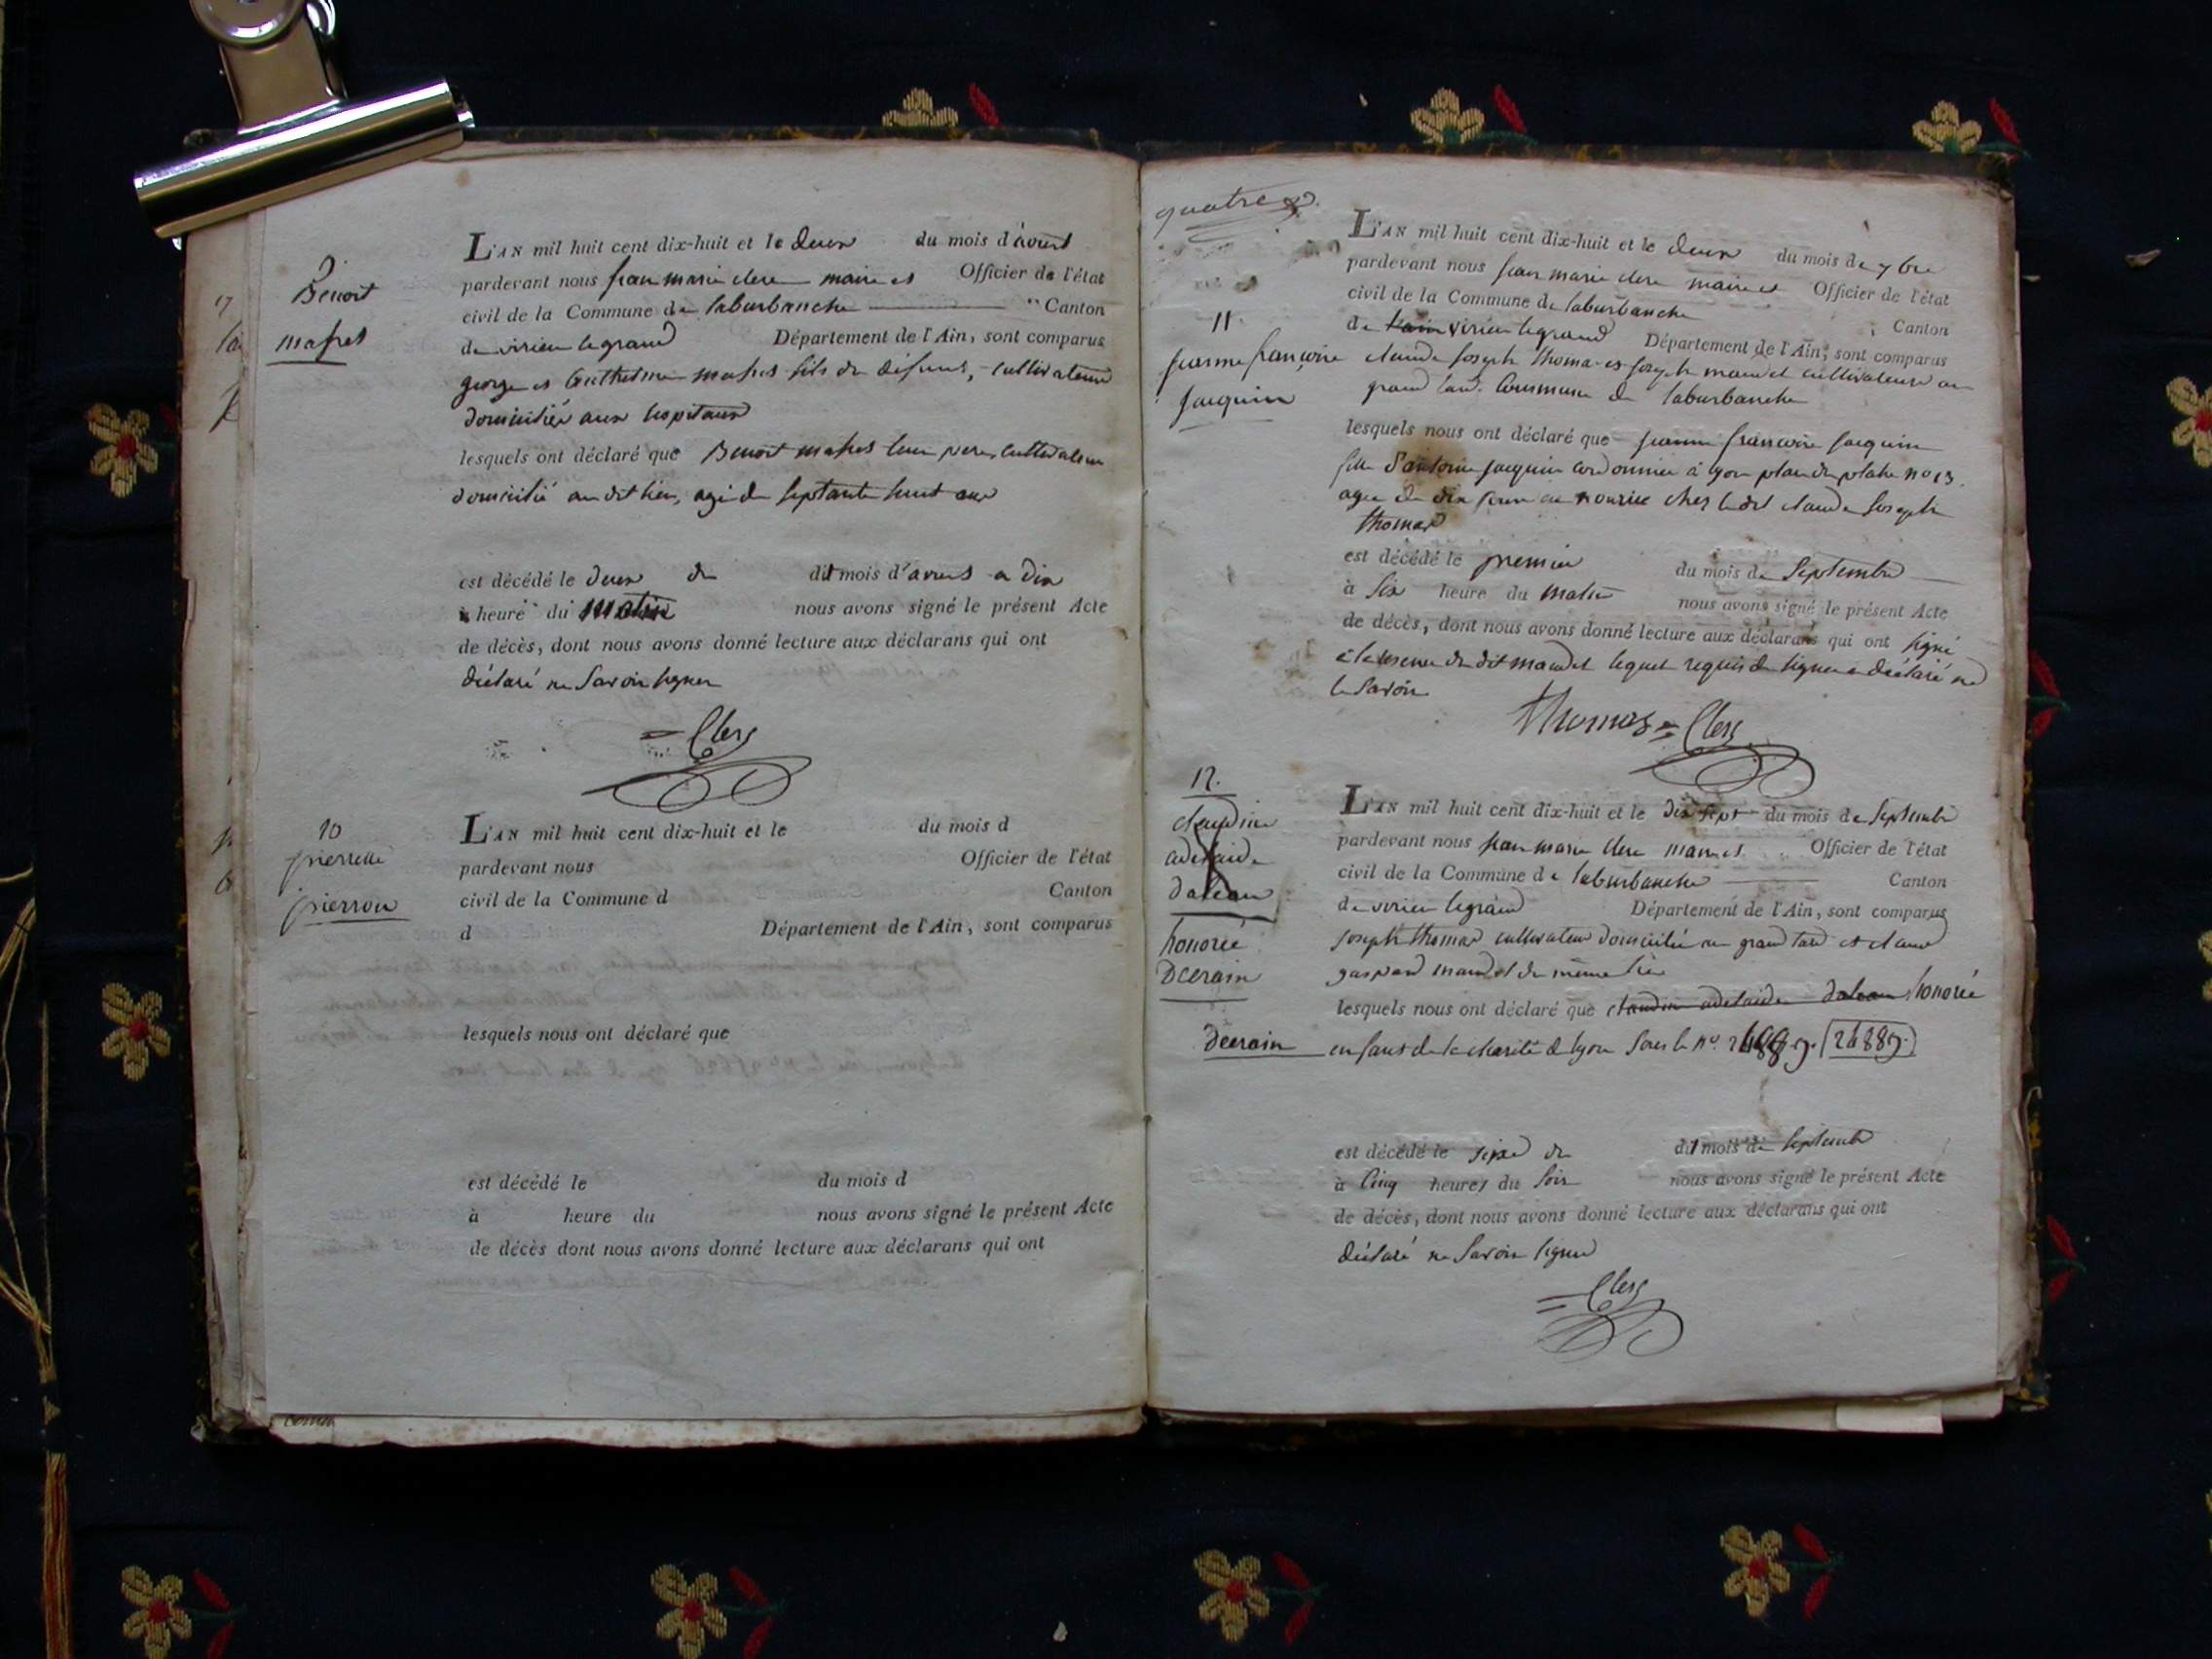 9
Benoit
mafret
L'AN mil huit cent dix-huit et le deux du mois d'
pardevant nous jean marie clerc maire et Officier de l'état
civil de la Commune de laburbanche Canton
de virieu legrand Département de l'Ain, sont comparus
george et Guethelme mafret fils du défunt, cultivateurs
domiciliés aux hopitaux
lesquels ont déclaré que Benoit mafret leur pere, cultivateur
domicilié au dit lieu, agé de septante huit ans
est décédé le deux du dit mois d' a dix
heure du matin nous avons signé le présent Acte
de décès, dont nous avons donné lecture aux déclarans qui ont
déclaré ne savoir signer
Clerc
10
pierrette
pierron
L'AN mil huit cent dix-huit et le du mois d
pardevant nous Officier de l'état
civil de la Commune d Canton
d Département de l'Ain, sont comparus
lesquels nous ont déclaré que
est décédé le du mois d
à heure du nous avons signé le présent Acte
de décès dont nous avons donné lecture aux déclarans qui ont
quatre
11.
jeanne françoise
jacquin
L'AN mil huit cent dix-huit et le deux du mois de 7bre
pardevant nous jean marie clerc maire et Officier de l'état
civil de la Commune de laburbanche Canton
de virieu legrand Département de l'Ain, sont comparus
claude joseph thomas et joseph mandet cultivateurs au
grand tard Commune de laburbanche
lesquels nous ont déclaré que jeanne francoise jacquin
fille d'antoine jacquin cordonnier à lyon place du platre no 13.
agée de dix jours en nourice chez ledit claude joseph
thomas
est décédé le premier du mois de Septembre
à six heure du matin nous avons signé le présent Acte
de décès, dont nous avons donné lecture aux déclarans qui ont signé
à du dit mandet lequel requis de signer a déclaré ne
le savoir
Thomas Clerc
12.
claudine
adelaide
daleau
honorée
Decrain
L'AN mil huit cent dix-huit et le dix sept du mois de Septembre
pardevant nous jean marie clerc maire et Officier de l'état
civil de la Commune de laburbanche Canton
de virieu legrand Département de l'Ain, sont comparus
joseph thomas cultivateur domicilié au grand tard et claude
gaspard mandet du même lieu
lesquels nous ont déclaré que claudine adelaide daleau honorée
Decrain enfant de la charité de lyon sous le no. 24889. (24889.)
est décédé le seize du dit mois de Septembre
à Cinq heures du soir nous avons signé le présent Acte
de décès, dont nous avons donné lecture aux déclarans qui ont
déclaré ne savoir signer
Clerc